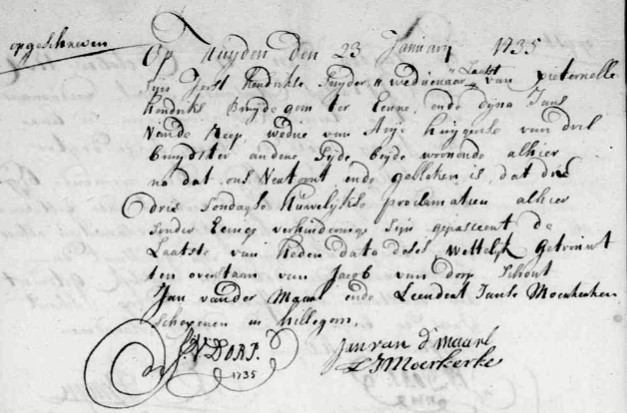 opgeschreven
Op Huyden den 23 January 1735
sijn Joost Hendrikse Snyder, weduwenaar Laast van Pieternelle
Hendriks Bruydegom ter Eenre, ende Dyna Jans
Vande Reep weduwe van Arye Huygense van driel
Bruydster andere Syde beyde woonende alhier
na dat ons Vertoont ende gebleken is, dat drie
drie sondagse Huwelykse proclamatien alhier
sonder Eenige verhinderinge sijn gepasseert de
Laatste van heden dato deses Wettelyk Getrouwt
ten overstaan van Jacob van dorp Schout
Jan vander Maarl ende Leendert Janse Moerkerken
Schepenen in Hillegom,
J. V DORP.
1735
Jan van d' maarl
L J Moerkerke